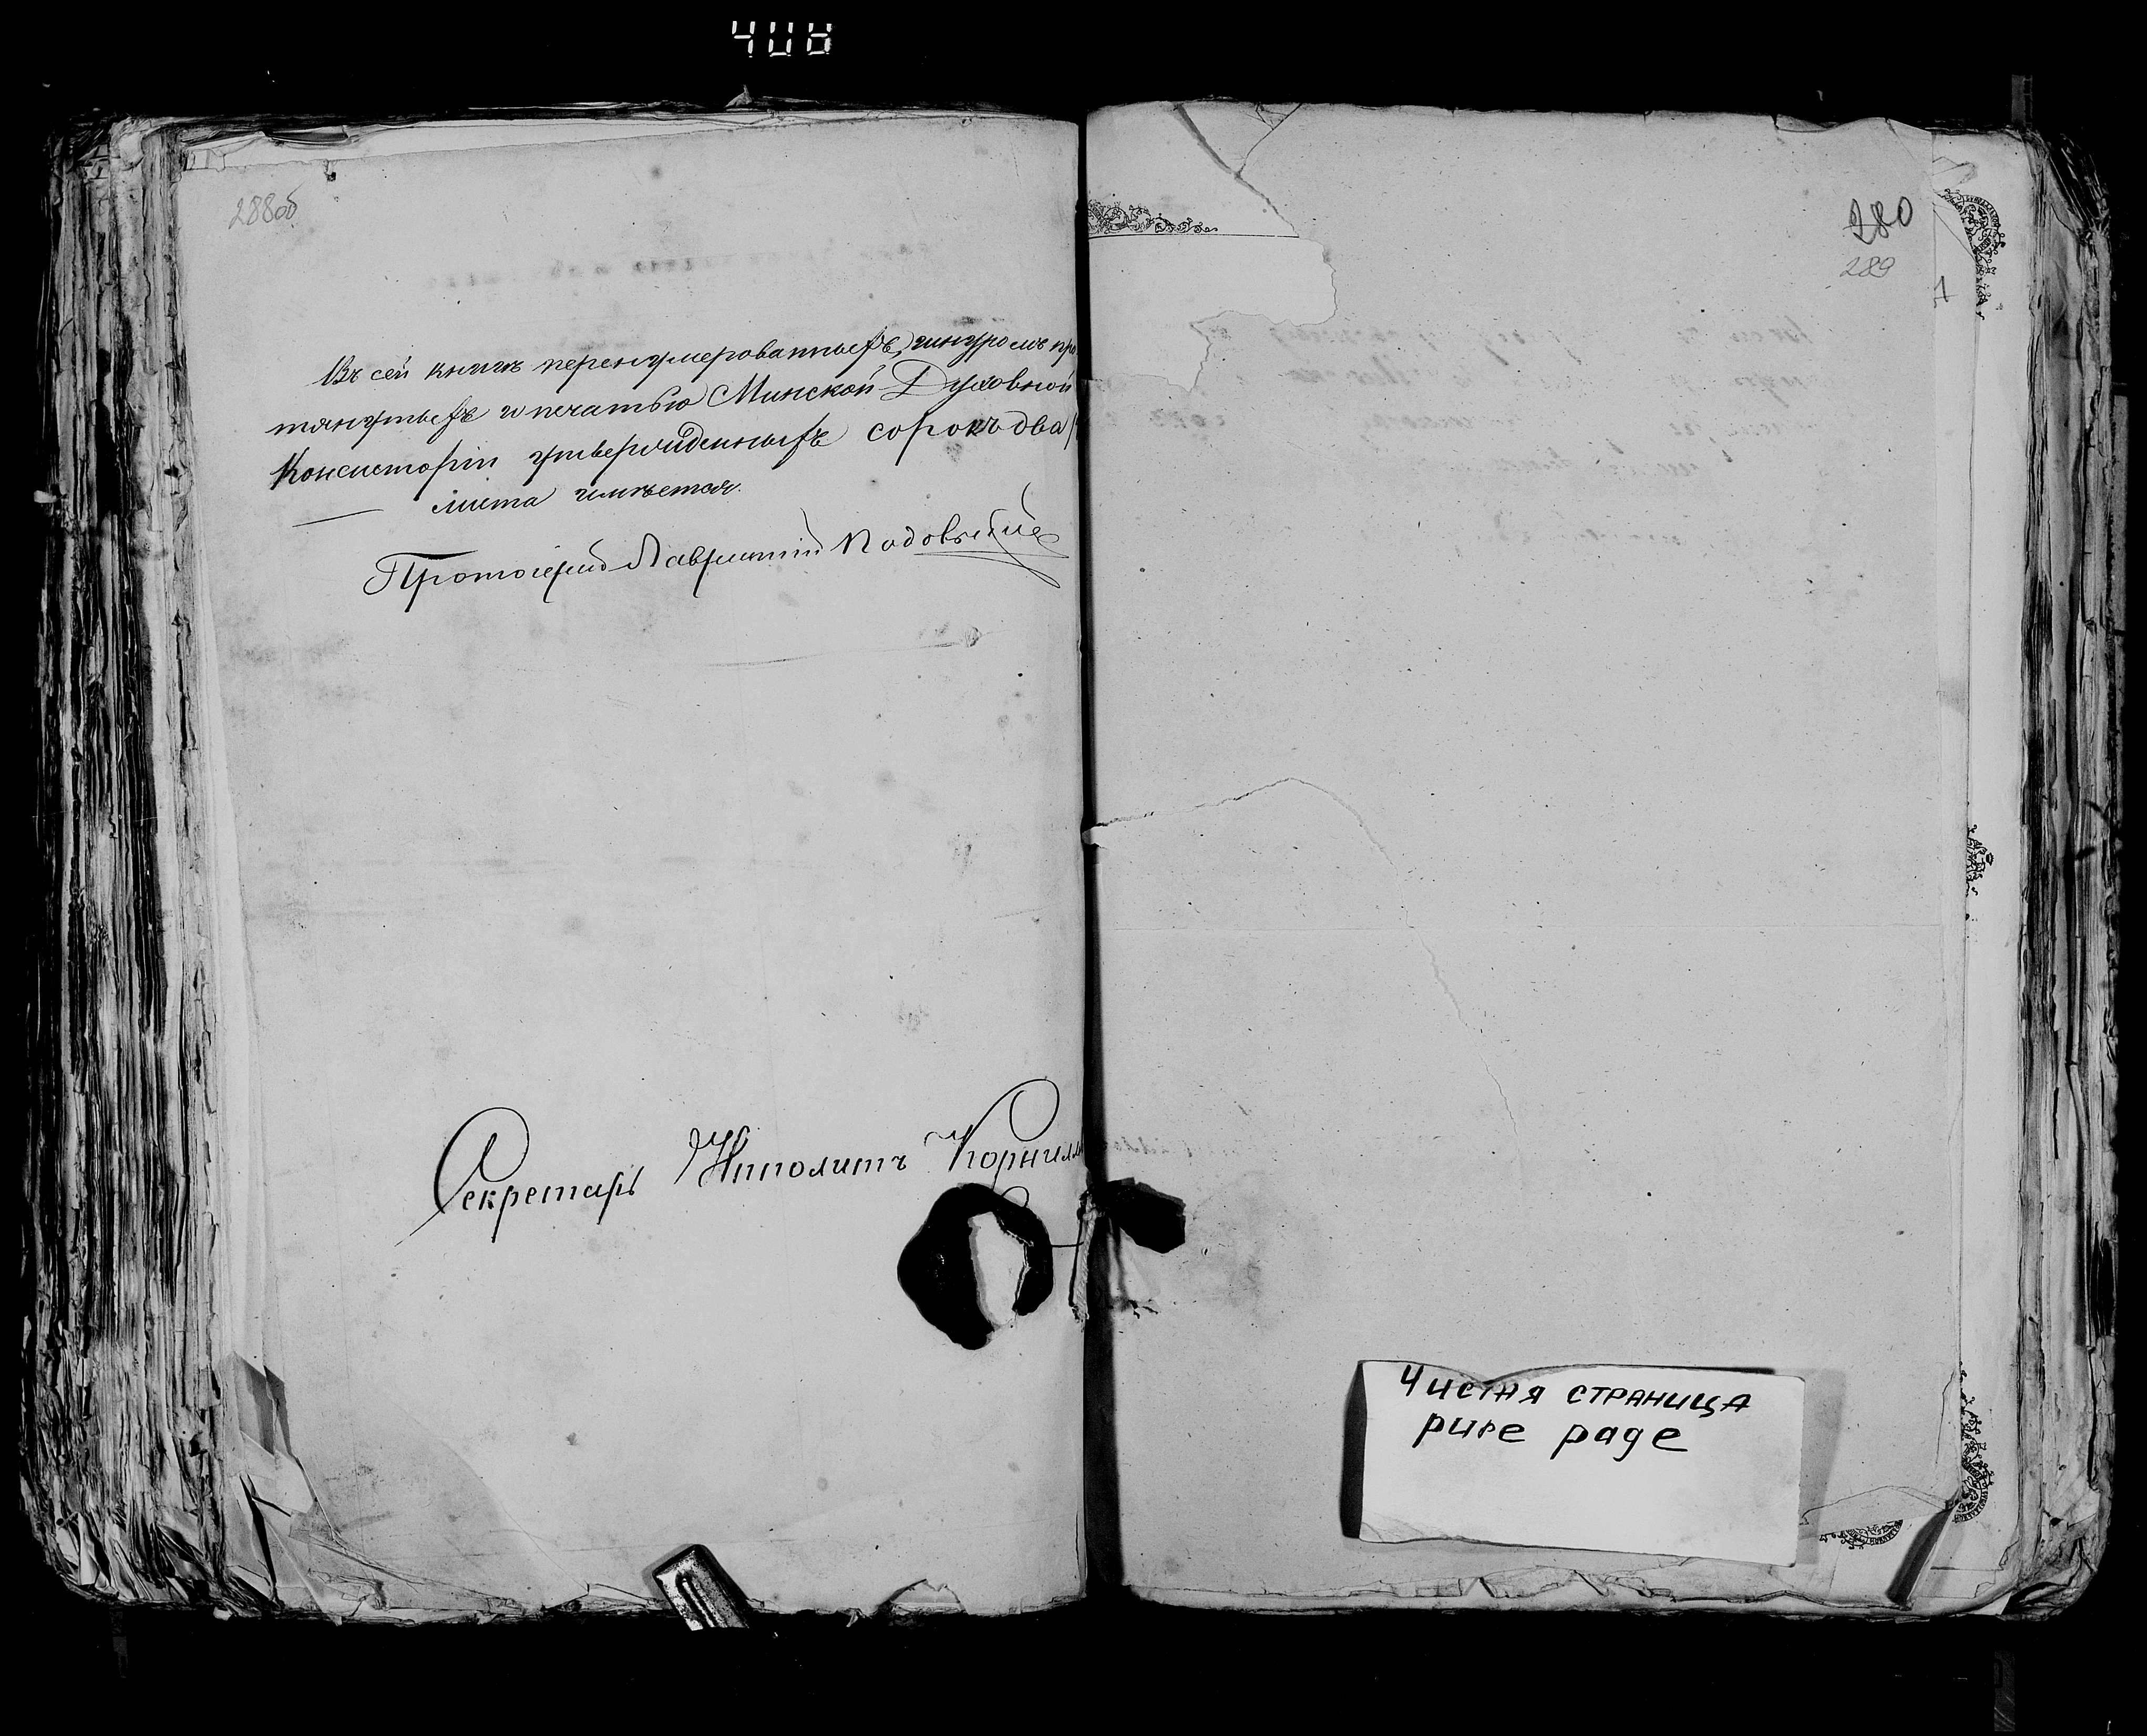 288об
Въ сей книгѣ перенумерованныхъ, шнуромъ про
тянутыхъ и печатью Минской Духовной
Консисторіи утвержденныхъ сорокъ два
листа имѣется.
Протоіерей Лаврентій
Секретарь Ипполитъ Корнил
280
289
Чистая страница
pure page